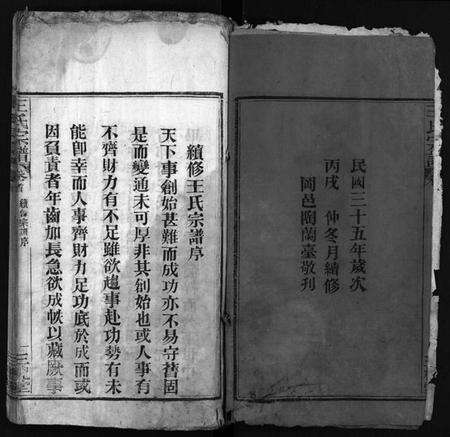 民國三十五年歲次
丙戌 仲冬月續修
岡邑陶蘭臺敬刊
續修王氏宗譜序
天下事創始甚難而成功亦不易守舊固
是而變通未可厚非其創始也或人事有
不齊財力有不足雖欲趨事赴功勢有未
能卽幸而人事齊財力足功底於成而或
因負責者年齒加長急欲成帙以藏厥事
王氏宗譜
續修宗譜序